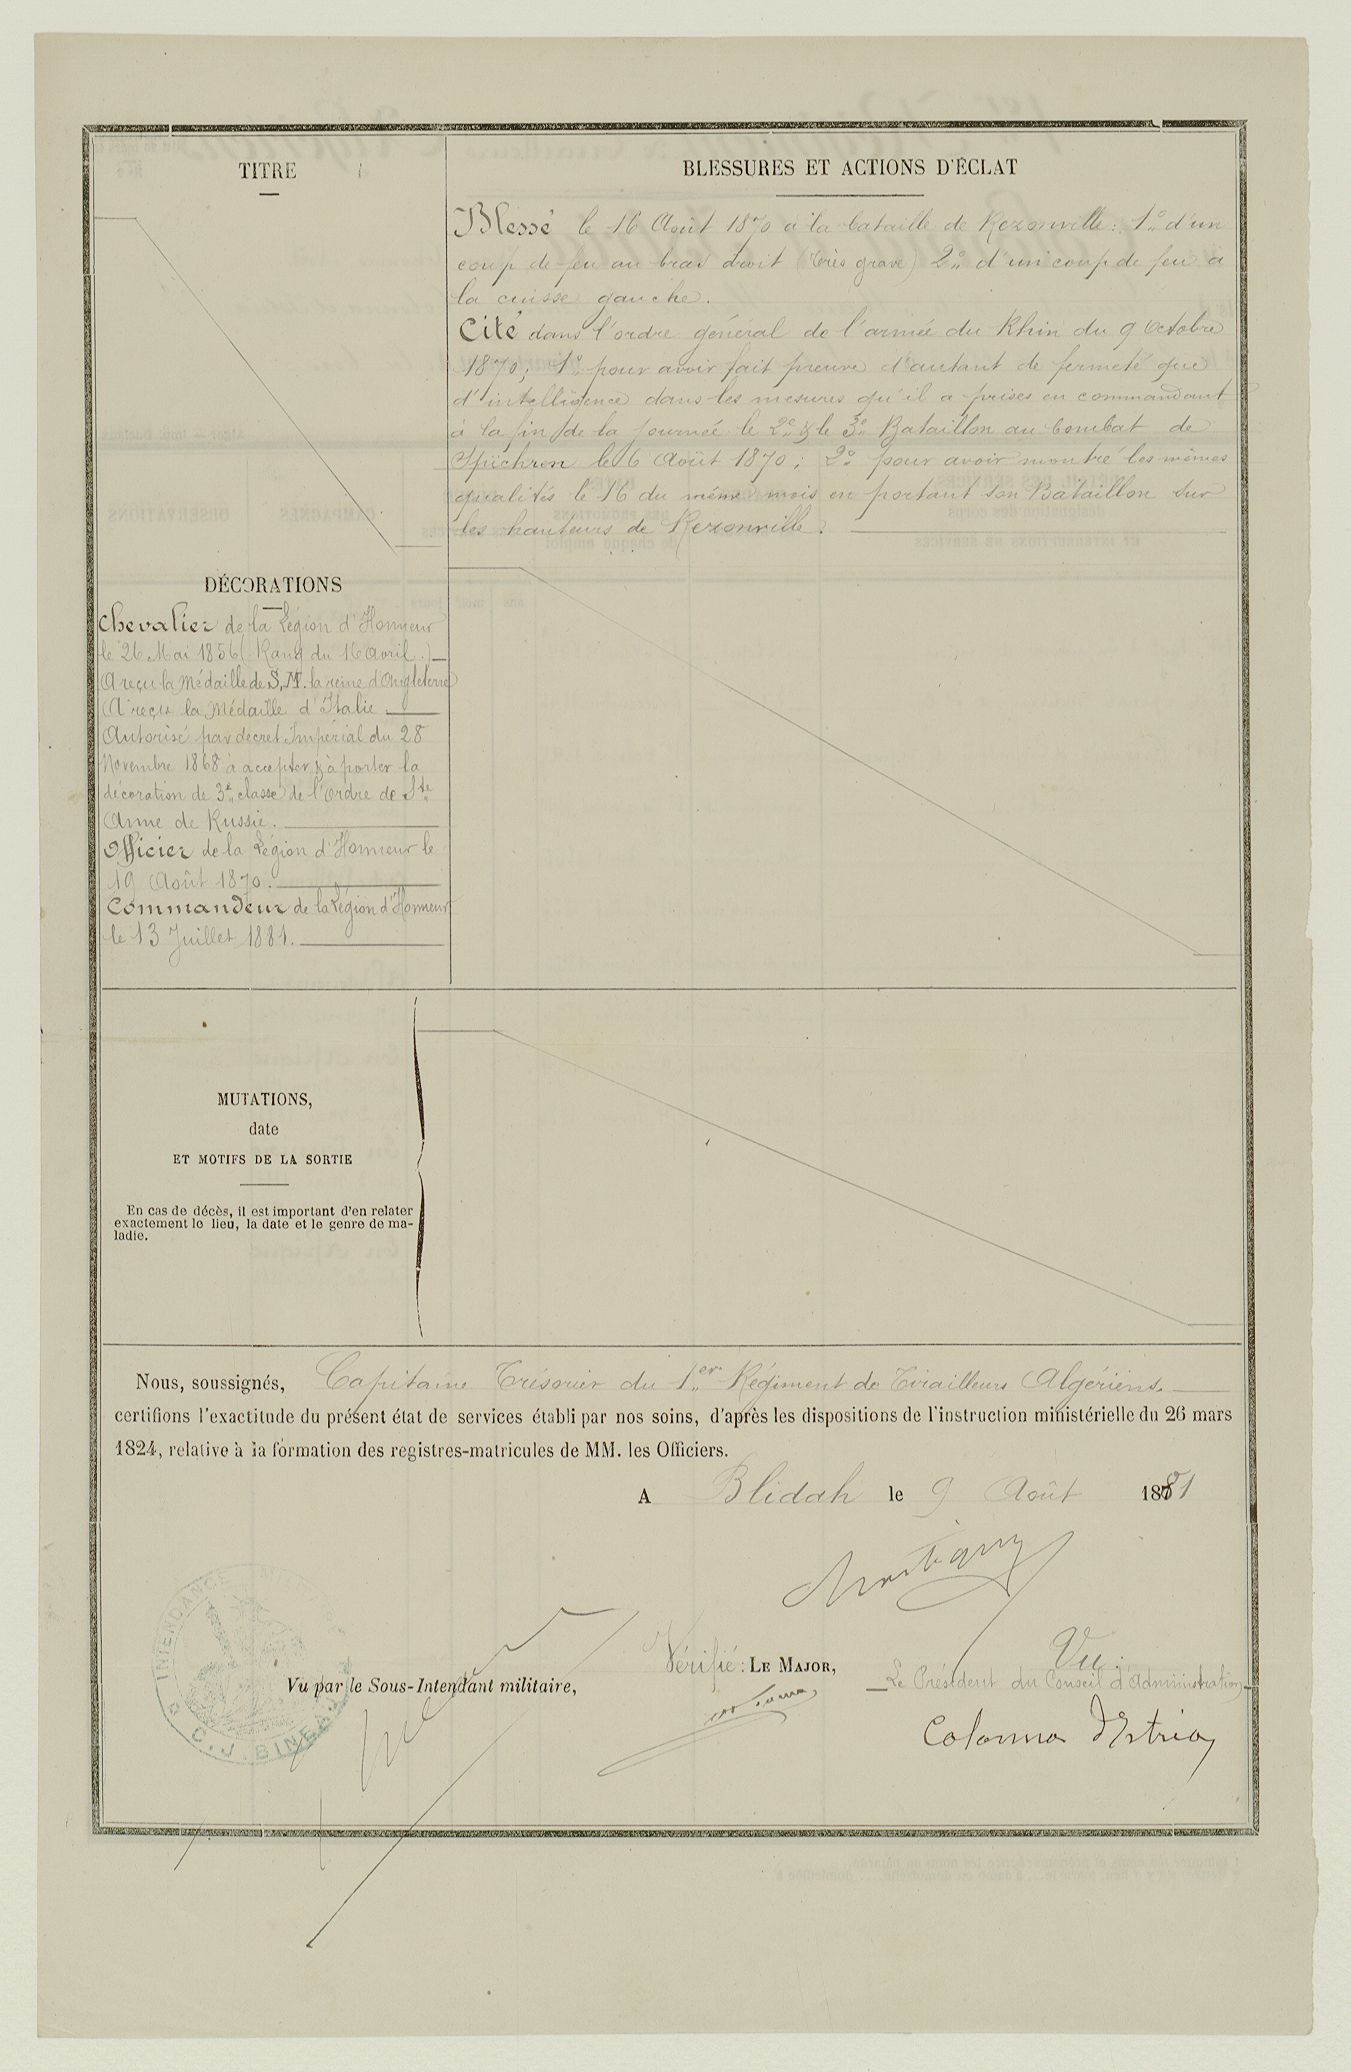 TITRE
BLESSURES ET ACTIONS D'ÉCLAT
Blessé le 16 Août 1870 à la bataille de Rezonville : 1° d'un
coup de feu au bras droit (très grave) 2° d'un coup de feu a
la cuisse gauche.
Cité dans l'ordre général de l'armée du Rhin du 9 Octobre
1870; 1° pour avoir fait preuve d'autant de fermeté que
d'intelligence dans les mesures qu'il a prises en commandant
à la fin de la journée le 2e & le 3e Bataillon au Combat de
Spichren le 6 Août 1870; 2° pour avoir montré les mêmes
qualités le 16 du même mois en portant son Bataillon sur
les hauteurs de Rezonville.
DÉCORATIONS
Chevalier de la Légion d'Honneur
le 26 Mai 1856 (Rang du 16 Avril.)
A reçu la Médaille de S. M. la reine d'Angleterre
A reçu la Médaille d'Italie
Autorisé par décret Impérial du 28
Novembre 1868 à accepter & à porter la
décoration de 3e classe de l'Ordre de Ste
Anne de Russie.
Officier de la Légion d'Honneur le
19 Août 1870.
Commandeur de la Légion d'Honneur
le 13 Juillet 1881.
MUTATIONS,
date
ET MOTIFS DE LA SORTIE
En cas de décès, il est important d'en relater
exactement le lieu, la date et le genre de ma-
ladie.
Nous, soussignés, Capitaine Trésorier du 1er Régiment de Tirailleurs Algériens.
certifions l'exactitude du présent état de services établi par nos soins, d'après les dispositions de l'instruction ministérielle du 26 mars
1824, relative à la formation des registres-matricules de MM. les Officiers.
A Blidah le 9 Août 1881
Vérifié : LE MAJOR,
Vu :
Vu par le Sous-Intendant militaire,
Le Président du Conseil d'Administration
Colonna d'Istria
INTENDANCE
C. J. BINEAU